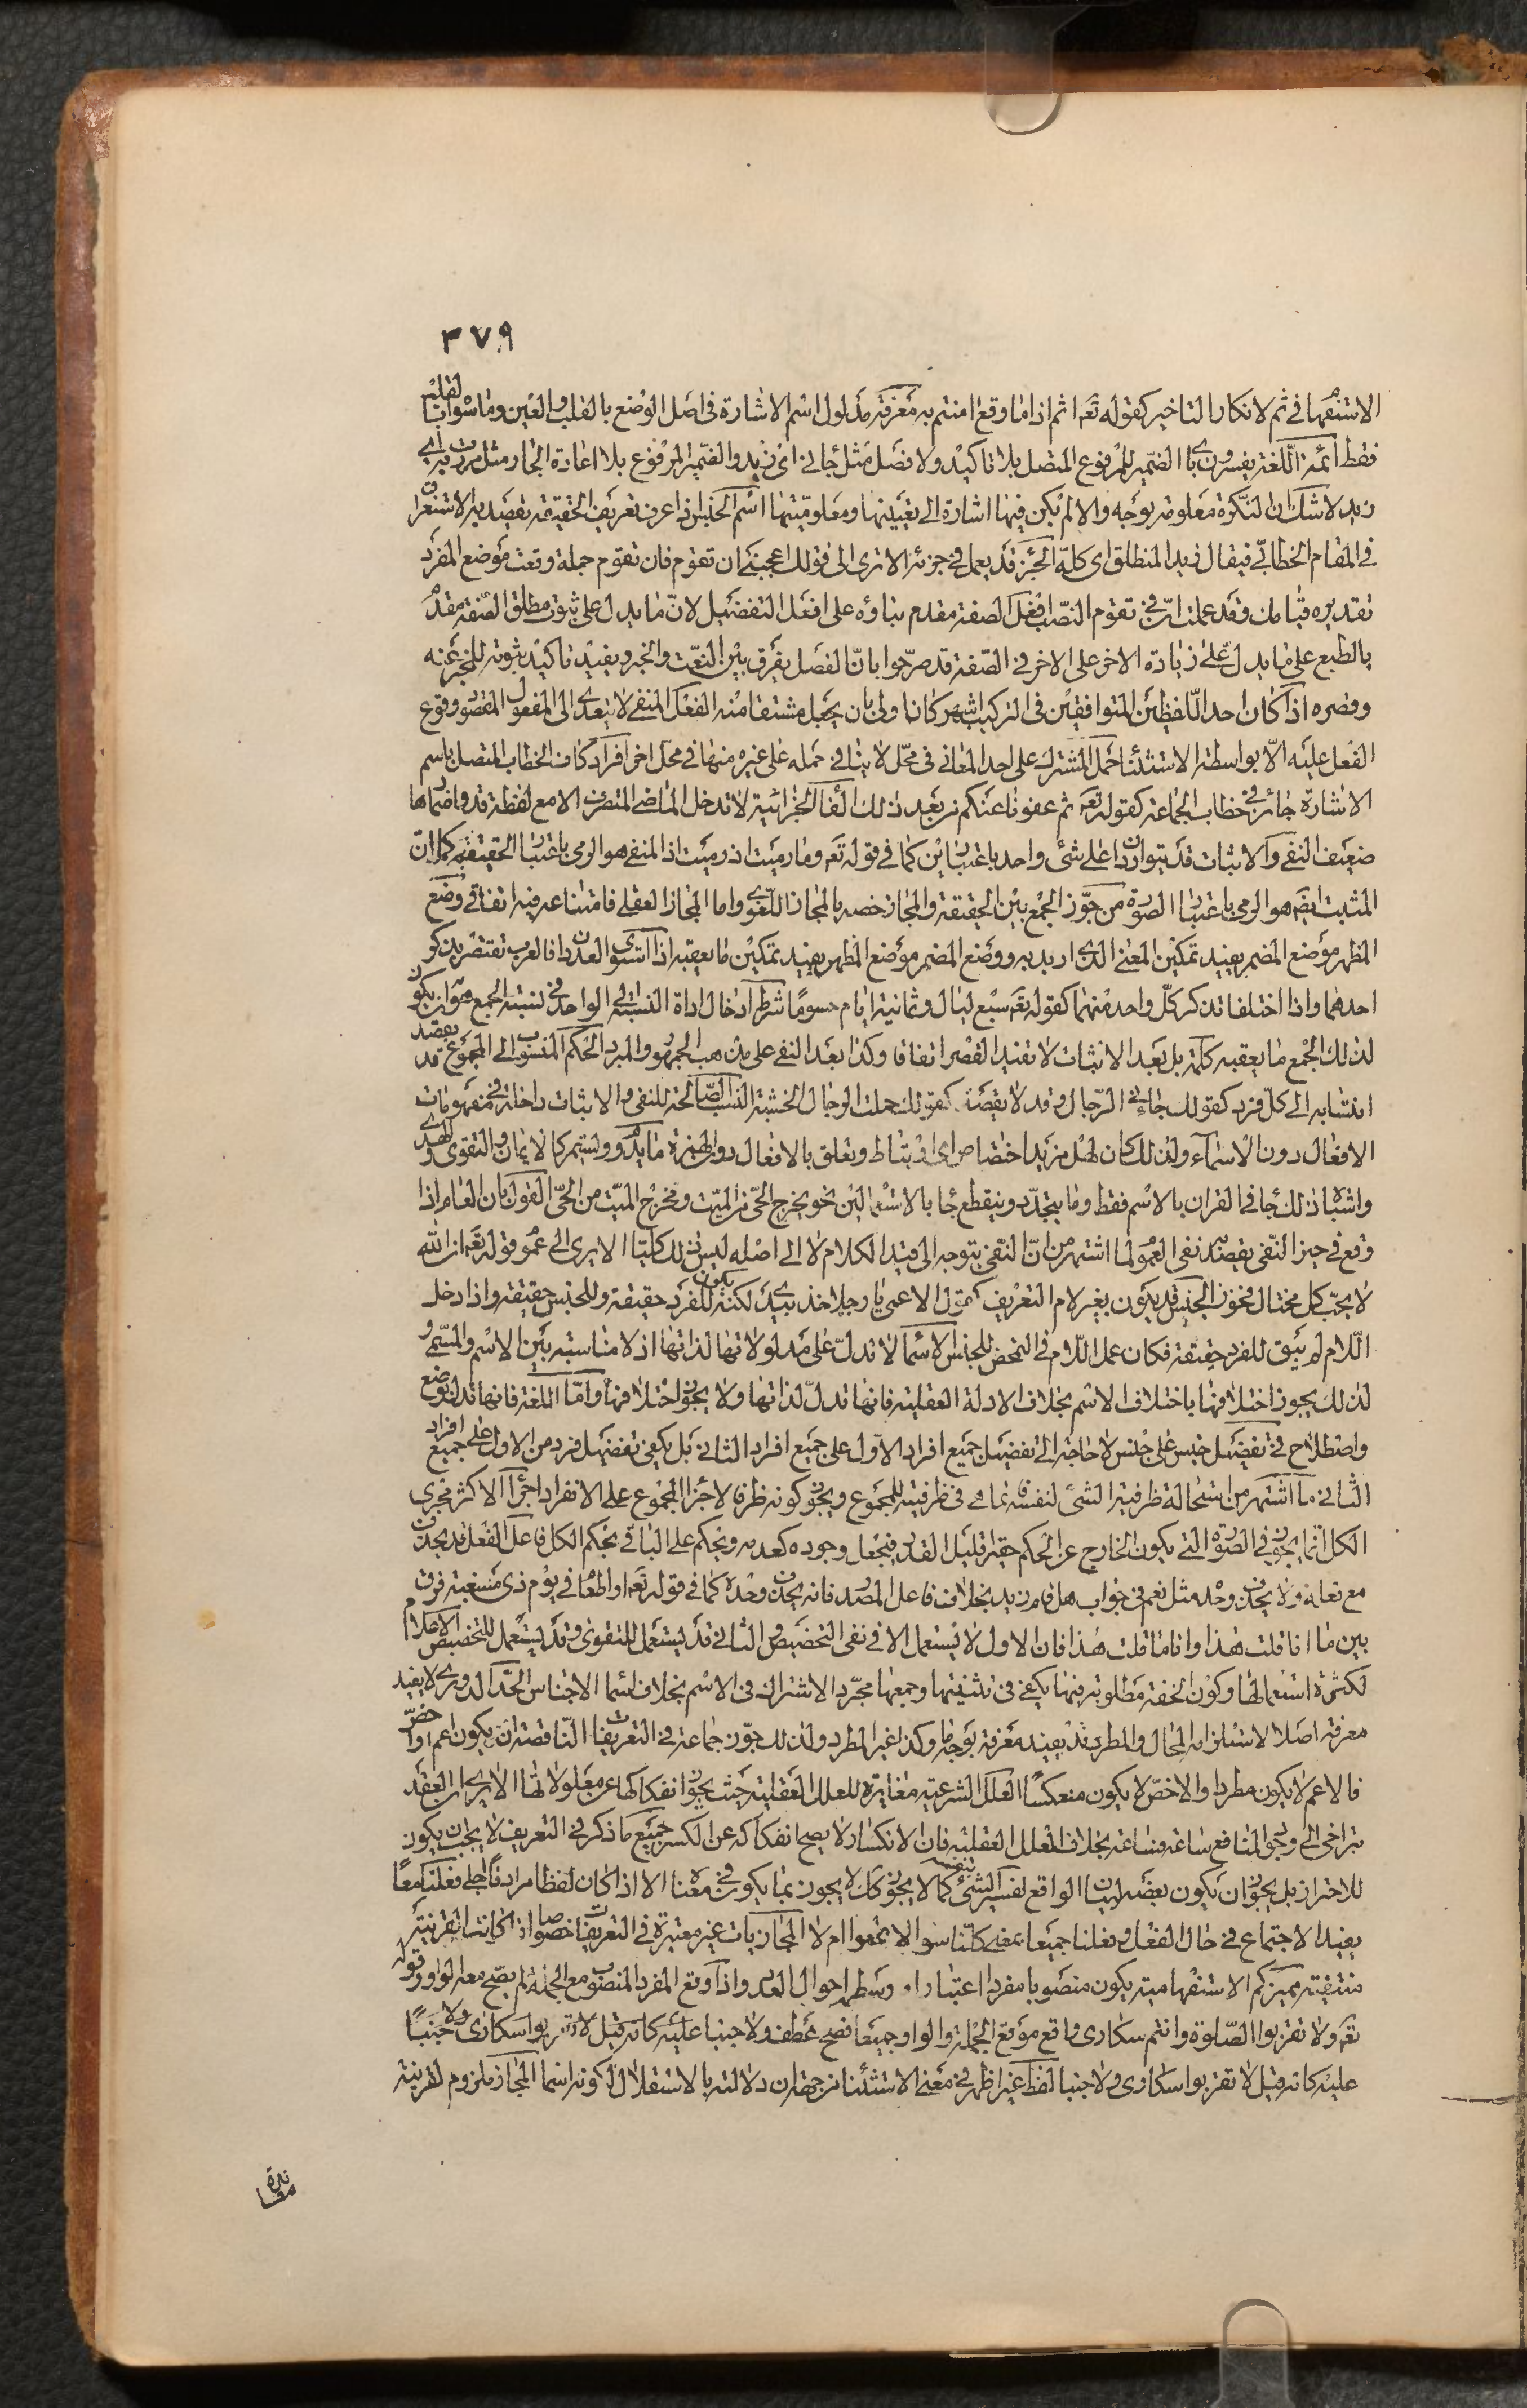 ٣٧٩
الاستفهام في ثم لانكار التاخير كقوله تعه اثم اذا ما وقع امنتم به معرفة مدلول اسم الاشارة في اصل الوضع بالقلب والعين وما سواه بالقلب
فقط ائمة اللغة يفسرون بالضمير المرفوع المتصل بلا تاكيد ولا فصل مثل جاني اي زيد والضمير المرفوع بلا اعادة الجار مثل مررت به اي
زيد لا شك ان النكرة معلومة بوجه والا لم يكن فيها اشارة الى تعيينها ومعلوميتها اسم الجنس اذا عرف تعريف الحقيقة تقصد به الاستغراق
في المقام الخطابي فيقال زيد المنطلق اي كله الجزء قد يعمل في جزئه الا ترى الى قولك اعجبني ان تقوم فان تقوم جملة وقعت موضع المفرد
تقديره قيامك وقد عملت ان في تقوم النصب افعل الصفة مقدم بناؤه على افعل التفضيل لان ما يدل على ثبوت مطلق الصفة مقدم
بالطبع على ما يدل على زيادة الاخر على الاخر في الصفة قد صرحوا بان الفصل يفرق بين النعت والخبر ويفيد تاكيد ثبوته للمخبر عنه
وقصره اذا كان احد اللفظين المتوافقين في التركيب اشهر كان اولى بان يجعل مشتقا منه الفعل المنفي لا يتعدى الى المفعول المقصود وقوع
الفعل عليه الا بواسطة الاستثنا حمل المشترك على احد المعاني في محل لا ينافي حمله على غيره منها في محل اخر افراد كاف الخطاب المتصل باسم
الاشارة جائز في خطاب الجماعة كقوله تعه ثم عفونا عنكم من بعد ذلك الفا الجزائية لا تدخل الماضي المتصرف الا مع لفظة قد واضمارها
ضعيف النفي والاثبات قد يتواردا على شئ واحد باعتبارين كما في قوله تعه وما رميت اذ رميت اذ المنفي هو الرمي باعتبار الحقيقة كما ان
المثبت ايضه هو الرمي باعتبار الصورة من جوز الجمع بين الحقيقة والمجاز خصه بالمجاز اللغوي واما المجاز العقلي فامتناعه فيه اتفاقي وضع
المظهر موضع المضمر يفيد تمكين المعنى الذي اريد به ووضع المضمر موضع المظهر يفيد تمكين ما يعقبه اذا استوى العددان فالعرب تقتصر بذكر
احدهما واذا اختلفا تذكر كل واحد منهما كقوله تعه سبع ليال وثمانية ايام حسوما شرط ادخال اداة النسب الى الواحد في نسبة الجمع هو ان يكون
لذلك الجمع ما يعقبه كلمة بل بعد الاثبات لا تفيد القصر اتفاقا وكذا بعد النفي على مذهب الجمهور والمبرد الحكم المنسوب الى المجموع قد يقصد
انتسابه الى كل فرد كقولك جاءني الرجال وقد لا يقصد كقولك حملت الرجال الخشبة النسب الصالحة للنفي والاثبات داخلة في مفهومات
الافعال دون الاسماء ولذلك كان لهل مزيد اختصاص اي ارتباط وتعلق بالافعال دون الهمزة ما يدوم ويستمر كالايمان والتقوى والهدى
واشباه ذلك جا في القران بالاسم فقط وما يتجدد وينقطع جا بالاستعمالين نحو يخرج الحي من الميت ومخرج الميت من الحي القول بان العام اذا
وقع في حيز النفي يقصد به نفي العموم لما اشتهر من ان النفي يتوجه الى قيد الكلام لا الى اصله ليس ذلك كليا الا يرى الى عموم قوله تعه ان الله
لا يحب كل مختال فخور الجنس قد يكون بغير لام التعريف كقول الاعمى يا رجلا خذ بيدي لكنه يكون للفرد حقيقة وللجنس حقيقة واذا دخل
اللام لم يبق للفرد حقيقة فكان عمل اللام في التمحض للجنس الاسما لا تدل على مدلولاتها لذاتها اذ لا مناسبة بين الاسم والمسمى و
لذلك يجوز اختلافها باختلاف الاسم بخلاف الادلة العقلية فانها تدل لذاتها ولا يجوز اختلافها واما اللغة فانها تدل بوضع
واصطلاح في تفضيل جنس على جنس لا حاجة الى تفضيل جميع افراد الاول على جميع افراد الثاني بل يكفي تفضيل فرد من الاول على جميع افراد
الثاني ما اشتهر من استحالة ظرفية الشئ لنفسه فانما هي في ظرفيته للمجموع ويجوز كونه ظرفا لاجزا المجموع على الانفراد اجرآ الاكثر مجرى
الكل انما يجوز في الصورة التي يكون الخارج عن الحكم حقيرا قليل القدر فيجعل وجوده كعدمه ويحكم على الباقي بحكم الكل فاعل الفعل قد يحذف
مع فعله ولا يحذف وحده مثل نعم في جواب هل قام زيد بخلاف فاعل المصدر فانه يحذف وحده كما في قوله تعه او اطعام في يوم ذي مسغبة فرق
بين ما انا قلت هذا وانا ما قلت هذا فان الاول لا يستعمل الا في نفي التخصيص والثاني قد يستعمل للتقوى وقد يستعمل للتخصيص الاعلام
لكثرة استعمالها وكون الخفة مطلوبة فيها يكفي في تثنيتها وجمعها مجرد الاشتراك في الاسم بخلاف اسما الاجناس الحد الدوري لا يفيد
معرفة اصلا لاستلزامه المحال والمطرد قد يفيد معرفة بوجه ما وكذا غير المطرد ولذلك جوز جماعة في التعريفات الناقصة ان يكون اعم او اخص
فالاعم لا يكون مطردا والاخص لا يكون منعكسا العلل الشرعية مغايرة للعلل العقلية حيث يجوز انفكاكها عن معلولاتها الا يرى ان العقد
يتراخى الى وجود المنافع ساعة فساعة بخلاف العلل العقلية فان الانكسار لا يصح انفكاكه عن الكسر جميع ما ذكر في التعريف لا يجب ان يكون
للاحتراز بل يجوز ان يكون بعضه لبيان الواقع تفسير الشئ بنفسه كما لا يجوز كك لا يجوز بما يكون في معناه الا اذا كان لفظا مرادفا اجلى فعلنا معا
يفيد الاجتماع في حال الفعل وفعلنا جميعا بمعنى كلنا سوا اجتمعوا ام لا المجازيات غير معتبرة في التعريفات خصوصا اذا كانت القرينة
منتفية مميز كم الاستفهامية يكون منصوبا مفردا اعتبارا وسط احوال العدد واذا وقع المفرد المنصوب مع الجملة لم يصح معه الواو وقوله
تعه ولا تقربوا الصلوة وانتم سكارى واقع موقع الجملة والواو جميعا فصح عطف ولا جنبا عليه كانه قيل لا تقربوا سكارى ولا جنبا
عليه كانه قيل لا تقربوا سكارى ولا جنبا لفظ غير اظهر في معنى الاستثنا من جهة ان دلالته بالاستقلال لكونه اسما المجاز ملزوم لقرينة